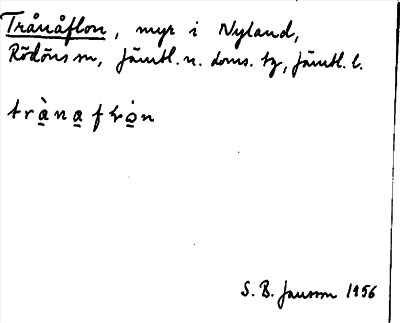 Trånåflon, myr i Nyland,
Rödöns sn, Jämtl. n. doms. tg, Jämtl. l.
trànaflọ̀n
S. B. Jansson 1956